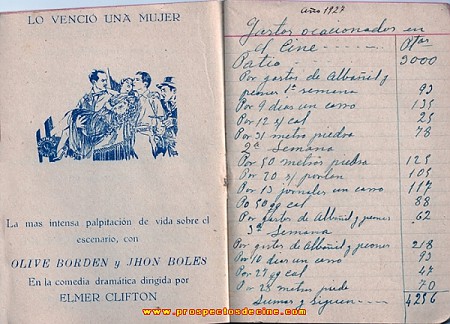 LO VENCIÓ UNA MUJER
La mas intensa palpitación de vida sobre el
escenario, con
OLIVE BORDEN y JHON BOLES
En la comedia dramática dirigida por
ELMER CLIFTON
año 1927
Gastos ocacionados en
el Cine Ptas
Patio 3000
Por gastos de Albañil y
peones 1ª semana 93
Por 9 dias un carro 135
Por 12 cal 25
Por 31 metro piedra 78
2ª Semana
Por 50 metros piedra 125
Por 20 105
Por 13 jornales un carro 117
Po 50 qq cal 88
Por gastos de Albañil y peones 62
3ª Semana
Por gastos de Albañil y peones 218
Por 10 dias un carro 93
Por 27 qq cal 47
Por 28 metro piedra 70
Suma y siguen 4256
www.prospectosdecine.com